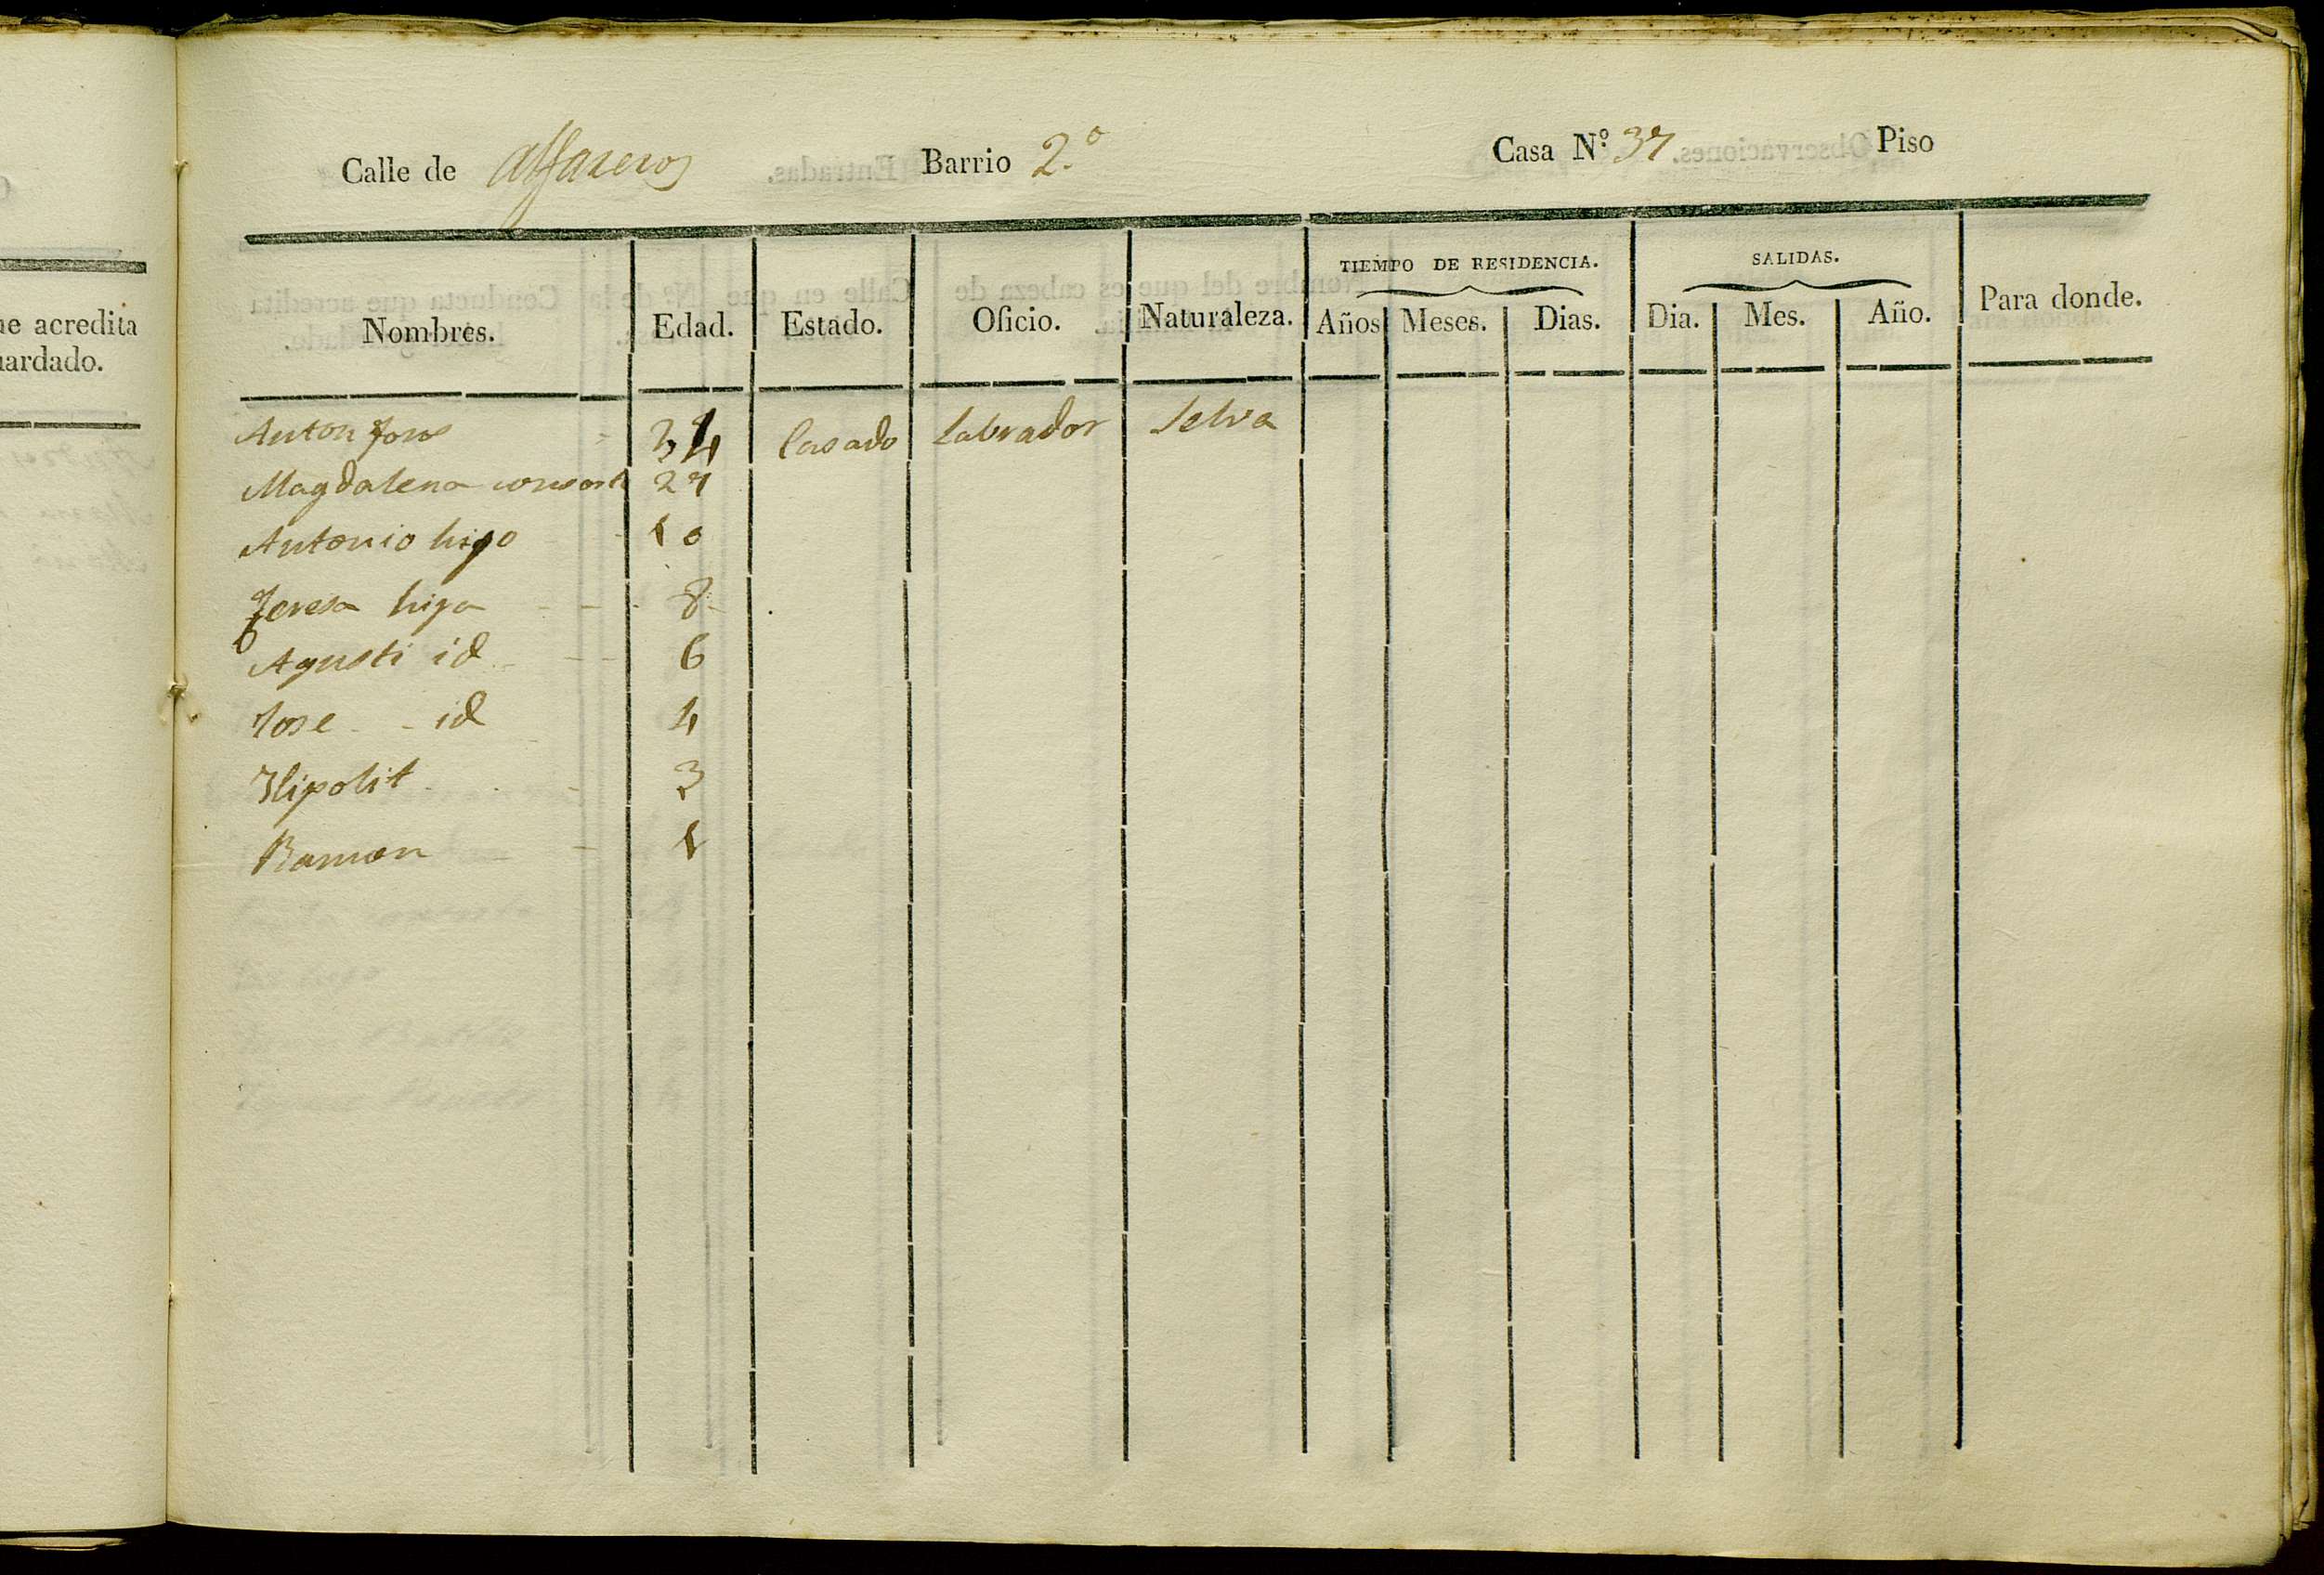 ue acredita
uardado.
Calle de Alfareros Barrio 2.º Casa Nº 37 Piso
TIEMPO DE RESIDENCIA. SALIDAS.
Nombres. Edad. Estado. Oficio. Naturaleza. Años Meses. Dias. Dia. Mes. Año. Para donde.
Anton 34 Casado Labrador Selva
Magdalena consort 27
Antonio hijo 10
Teresa hija 8
Agusti id 6
Jose id 4
Hipolit 3
Ramon 1